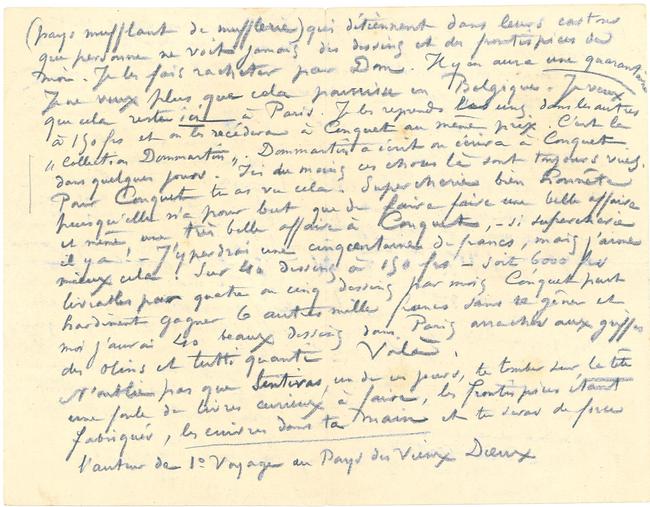 (pays mufflant de mufflerie) qui détiennent dans leurs cartons
que personne ne voit jamais des dessins et des frontispices de
moi. Je les fais racheter par Dom. Il y en aura une quarantaine
Je ne veux plus que cela pourrisse en Belgique. Je veux
que cela reste ici à Paris. Je les reprends les uns dans les autres
à 150 frs et on les recèdera à Conquet au même prix. C'est la
"Collection Dommartin". Dommartin a écrit ou écrira à Conquet
dans quelques jours. Ici du moins ces choses là sont toujours vues.
Pour Conquet tu as vu cela. Supercherie bien honnête
puisqu'elle n'a pour but que de faire faire une belle affaire
et même une très belle affaire à Conquet, - si supercherie
il y a ! - J'y perdrai une cinquantaine de francs, mais j'aime
mieux cela ! Sur 40 dessins à 150 frs - soit 6000 frs
livrables par quatre ou cinq dessins par mois Conquet peut
hardiment gagner 6 autres mille francs sans se gêner et
moi j'aurai 40 beaux dessins dans Paris arrachés aux griffes
des Olins et tutti quanti Voilà.
N'oublie pas que sentiras, un de ces jours, te tomber sur la tête
une foule de livres curieux à faire, les frontispices étant
fabriqués, les cuivres dans ta main et tu seras de force
l'auteur de 1º Voyage au Pays des Vieux Dieux